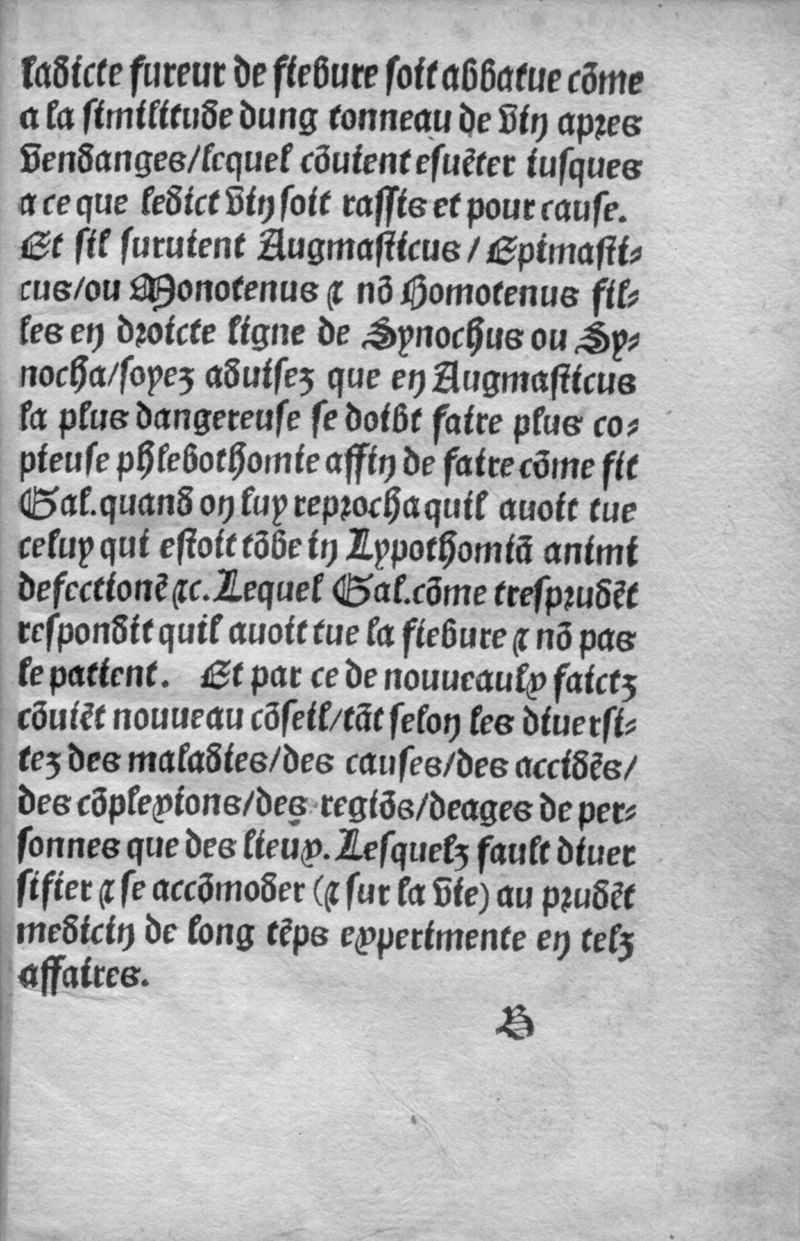 ladicte fureur de fiebure soit abbatue cõme
a la similitude dung tonneau de vin apres
vendanges/lequel cõuient esuẽter iusques
a ce que ledict vin soit rassis et pour cause.
Et sil suruient Augmasticus/ Epimasti⸗
cus/ou Monotenus ⁊ nõ Homotenus fil⸗
les en droicte ligne de Synochus ou Sy⸗
nocha/soyez aduisez que en Augmasticus
la plus dangereuse se doibt faire plus co⸗
pieuse phlebothomie affin de faire cõme fit
Gal.quand on luy reprocha quil auoit tue
celuy qui estoit tõbe in Lypothomiã animi
defectionẽ ⁊c. Lequel Gal.cõme tresprudẽt
respondit quil auoit tue la fiebure ⁊ nõ pas
le patient. Et par ce de nouueaulx faictz
cõuiẽt nouueau cõseil/tãt selon les diuersi⸗
tez des maladies/des causes/des accidẽs/
des cõplexions/des regiõs/deages de per⸗
sonnes que des lieux. Lesquelz fault diuer
sifier ⁊ se accõmoder (⁊ sur la vie) au prudẽt
medicin de long tẽps experimente en telz
affaires.
B